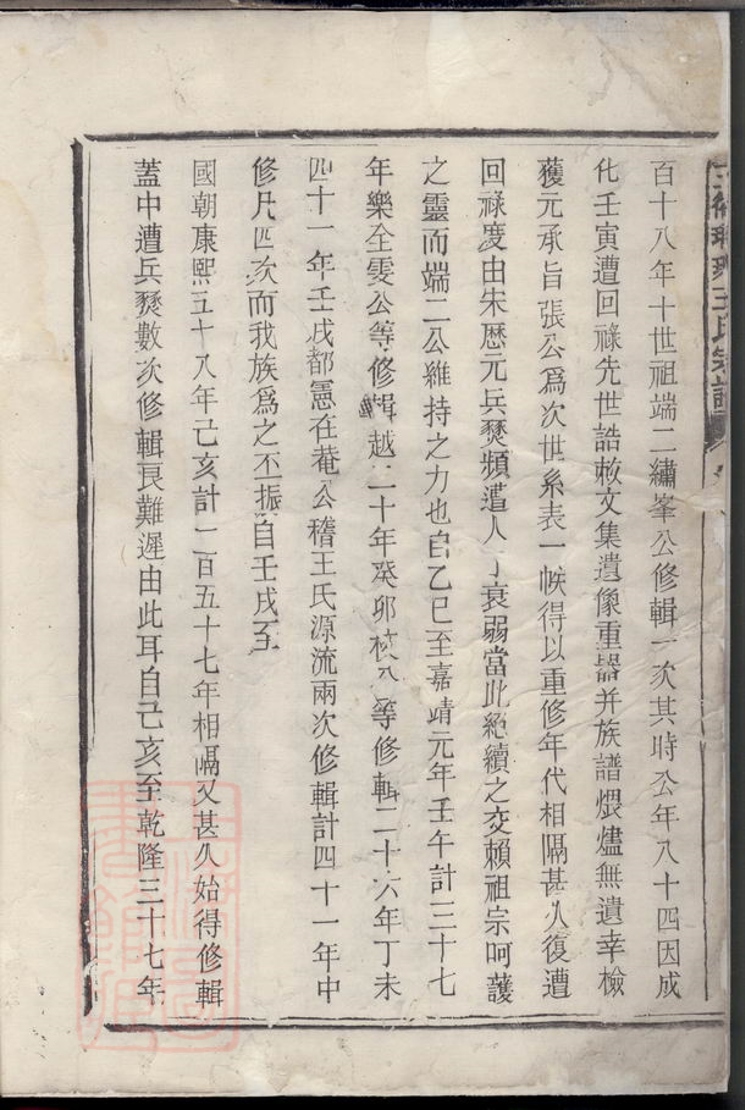 百十八年十世祖端二繡峯公修輯一次其時公年八十四因成
化壬寅遭回祿先世誥敕文集遺像重器并族譜煨燼無遺幸檢
獲元承旨張公爲次世系表一帙得以重修年代相隔甚久復遭
回祿度由朱歷元兵燹頻遭人丁衰弱當此絕續之交賴祖宗呵護
之靈而端二公維持之力也自乙巳至嘉靖元年壬午計三十七
年樂全雯公等修輯越二十年癸卯 等修輯二十六年丁未
四十一年壬戌都憲在菴公稽王氏源流兩次修輯計四十一年中
修凡四次而我族爲之丕振自壬戌至
國朝康熙五十八年己亥計一百五十七年相隔又甚久始得修輯
蓋中遭兵燹數次修輯良難遲由此耳自己亥至乾隆三十七年